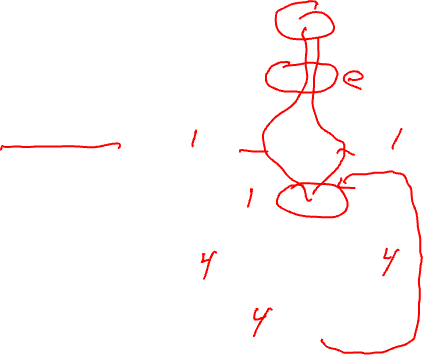 e
1 1
1
4 4
4